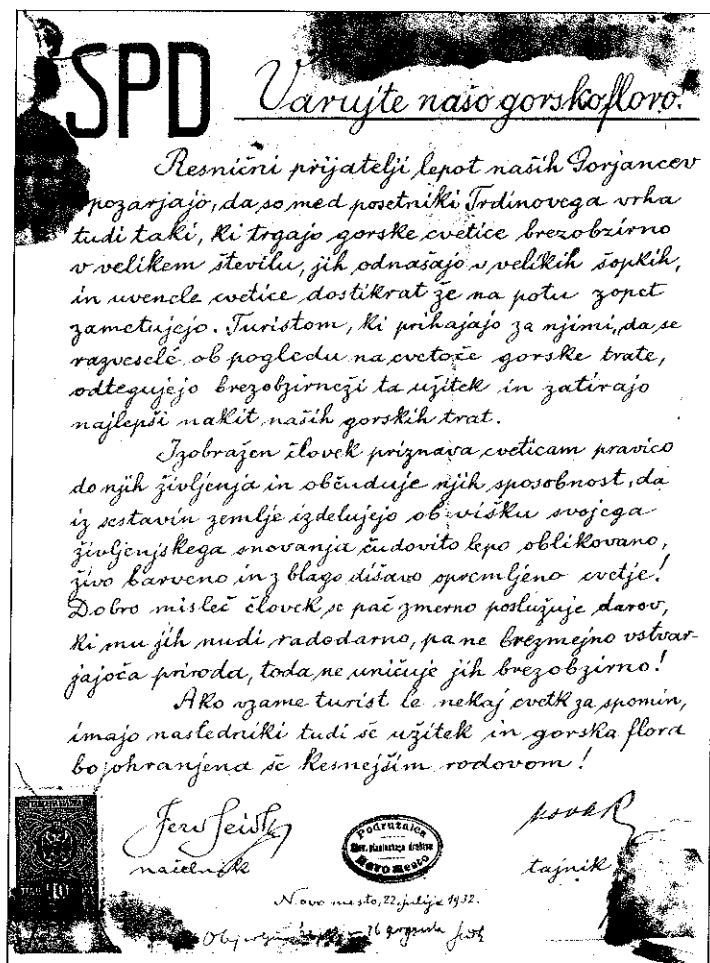 SPD
Varujte našo gorsko floro!
Resnični prijatelji lepot naših Gorjancev
opozarjajo, da so med posetniki Trdinovega vrha
tudi taki, ki trgajo gorske cvetice brezobzirno
v velikem številu, jih odnašajo v velikih šopkih,
in uvenele cvetice dostikrat že na potu zopet
zametujejo. Turistom, ki prihajajo za njimi, da se
razvesele ob pogledu na cvetoče gorske trate,
odtegujejo brezobzirneži ta užitek in zatirajo
najlepši nakit naših gorskih trat.
Izobražen človek priznava cveticam pravico
do njih življenja in občuduje njih sposobnost, da
iz sestavin zemlje izdelujejo ob višku svojega
življenjskega snovanja čudovito lepo oblikovano,
živo barveno in z blago dišavo opremljeno cvetje!
Dobro misleč človek se pač zmerno poslužuje darov,
ki mu jih nudi radodarno, pa ne brezmejno vstvar-
jajoča priroda, toda ne uničuje jih brezobzirno!
Ako vzame turist le nekaj cvetk za spomin,
imajo nasledniki tudi še užitek in gorska flora
bo ohranjena še kesnejšim rodovom!
Podružnica
Slov. planinskega društva
Novo mesto
načelnik
tajnik
Novo mesto, 22. julija 1932.
10
26 avgusta